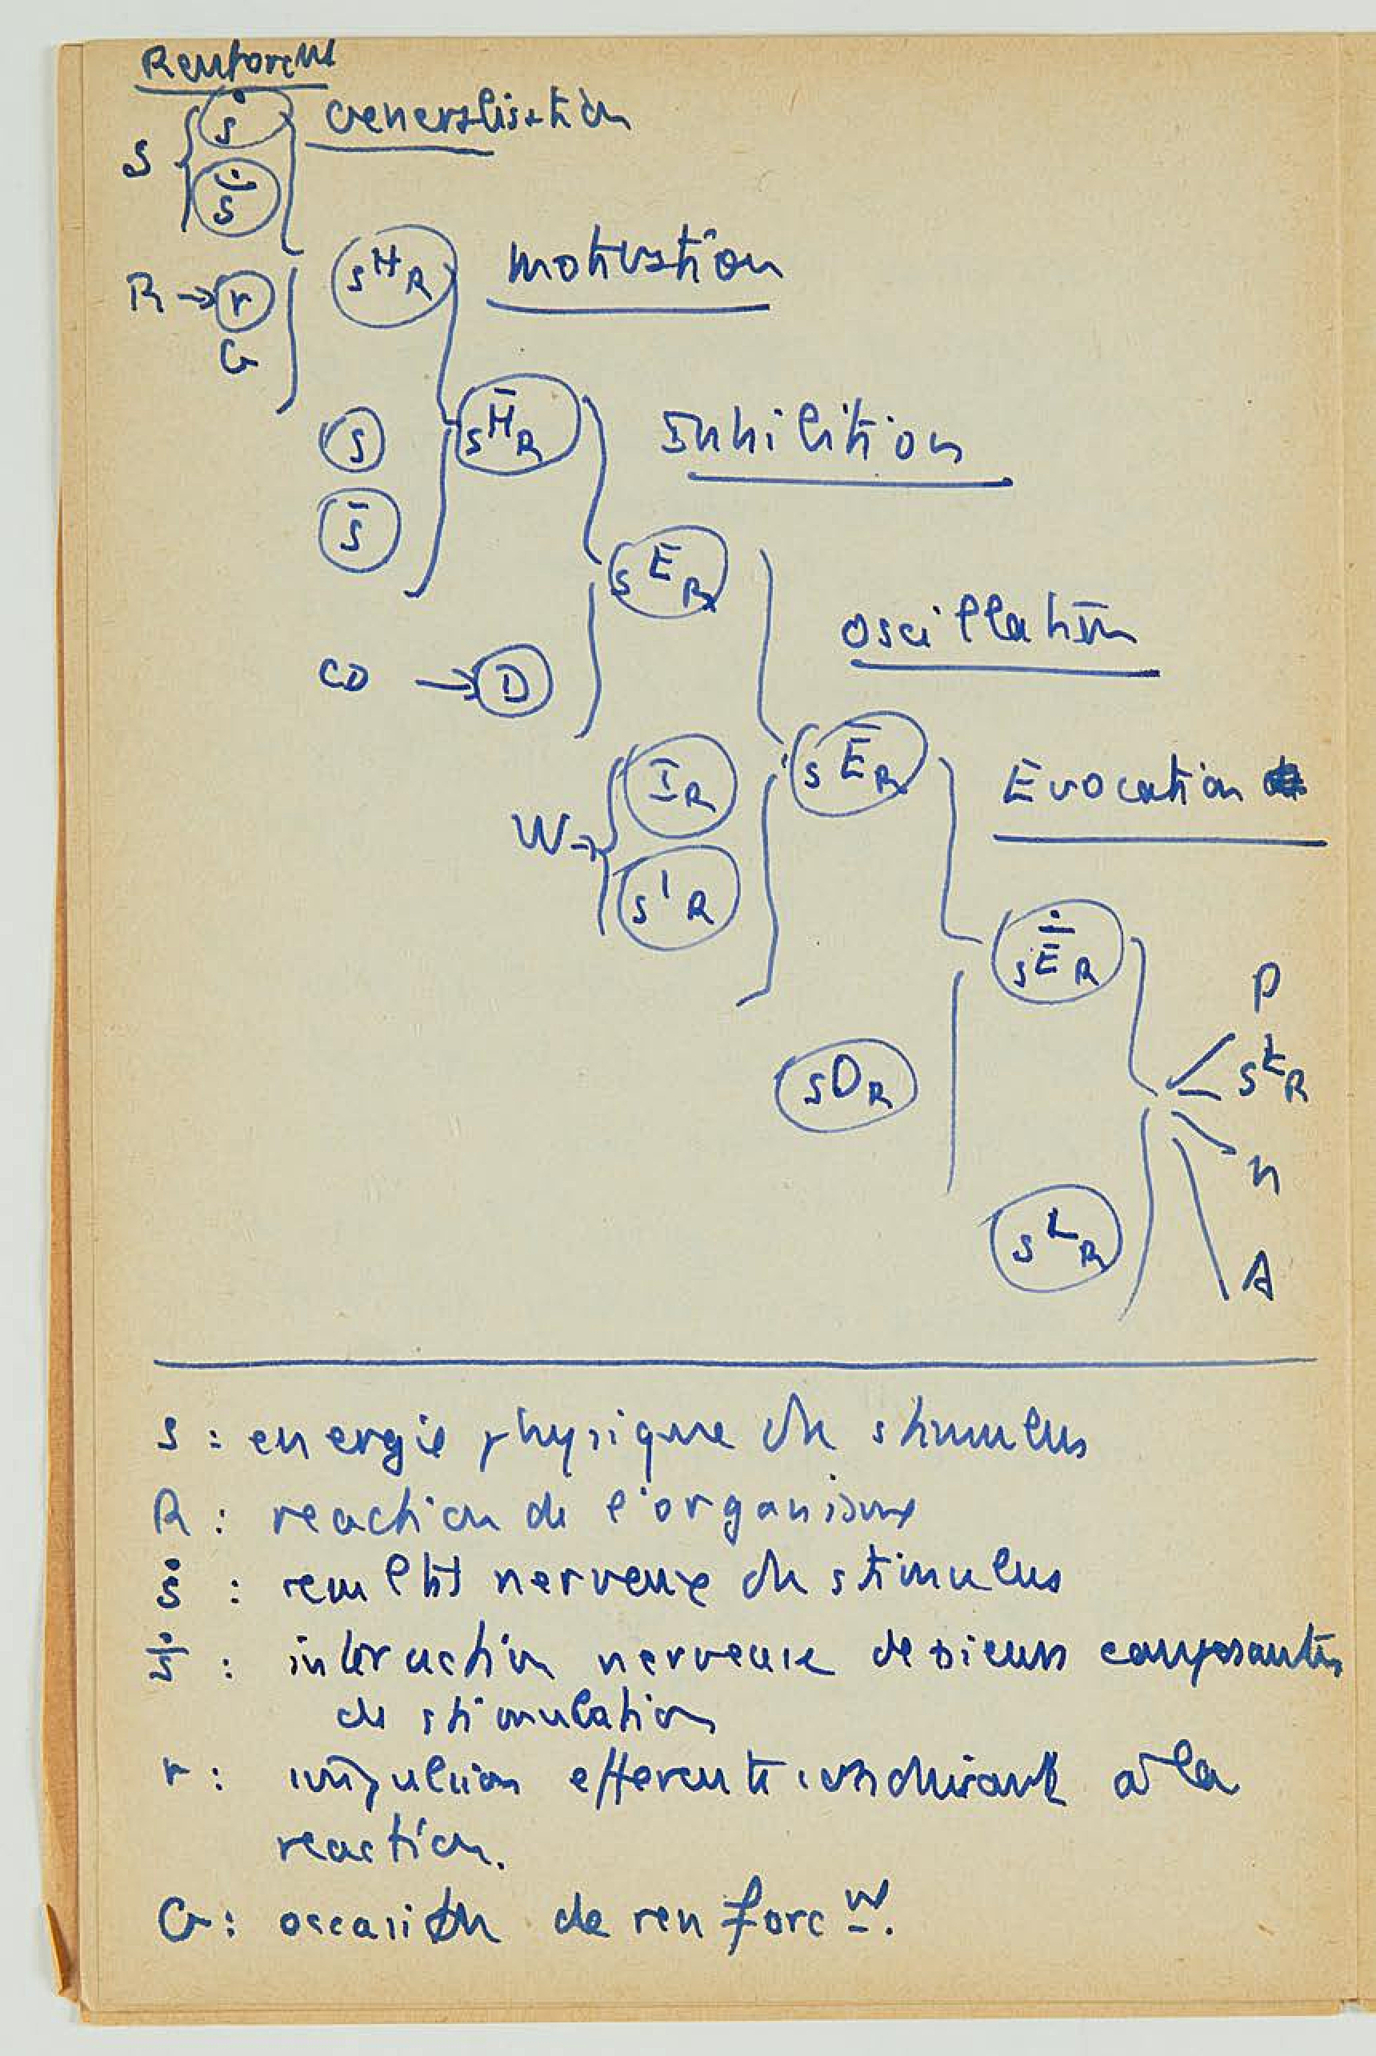 Renforcnt
Generalisation
S { ṡ
s̄̇
R → r
G
sHR
motivation
s
s̄
sH̄R
Inhibition
CD → D
sER
oscillation
W → IR
sIR
sĒR
Evocation
sOR
sĒ̇R
sLR
P
stR
n
A
S : energie physique du stimulus
R : reaction de l'organisme
ṡ : resultat nerveux du stimulus
s̄̇ : interaction nerveuse de composantes
de stimulation
r : impulsion efferente conduisant à la
reaction.
G : occasion de renforcnt.